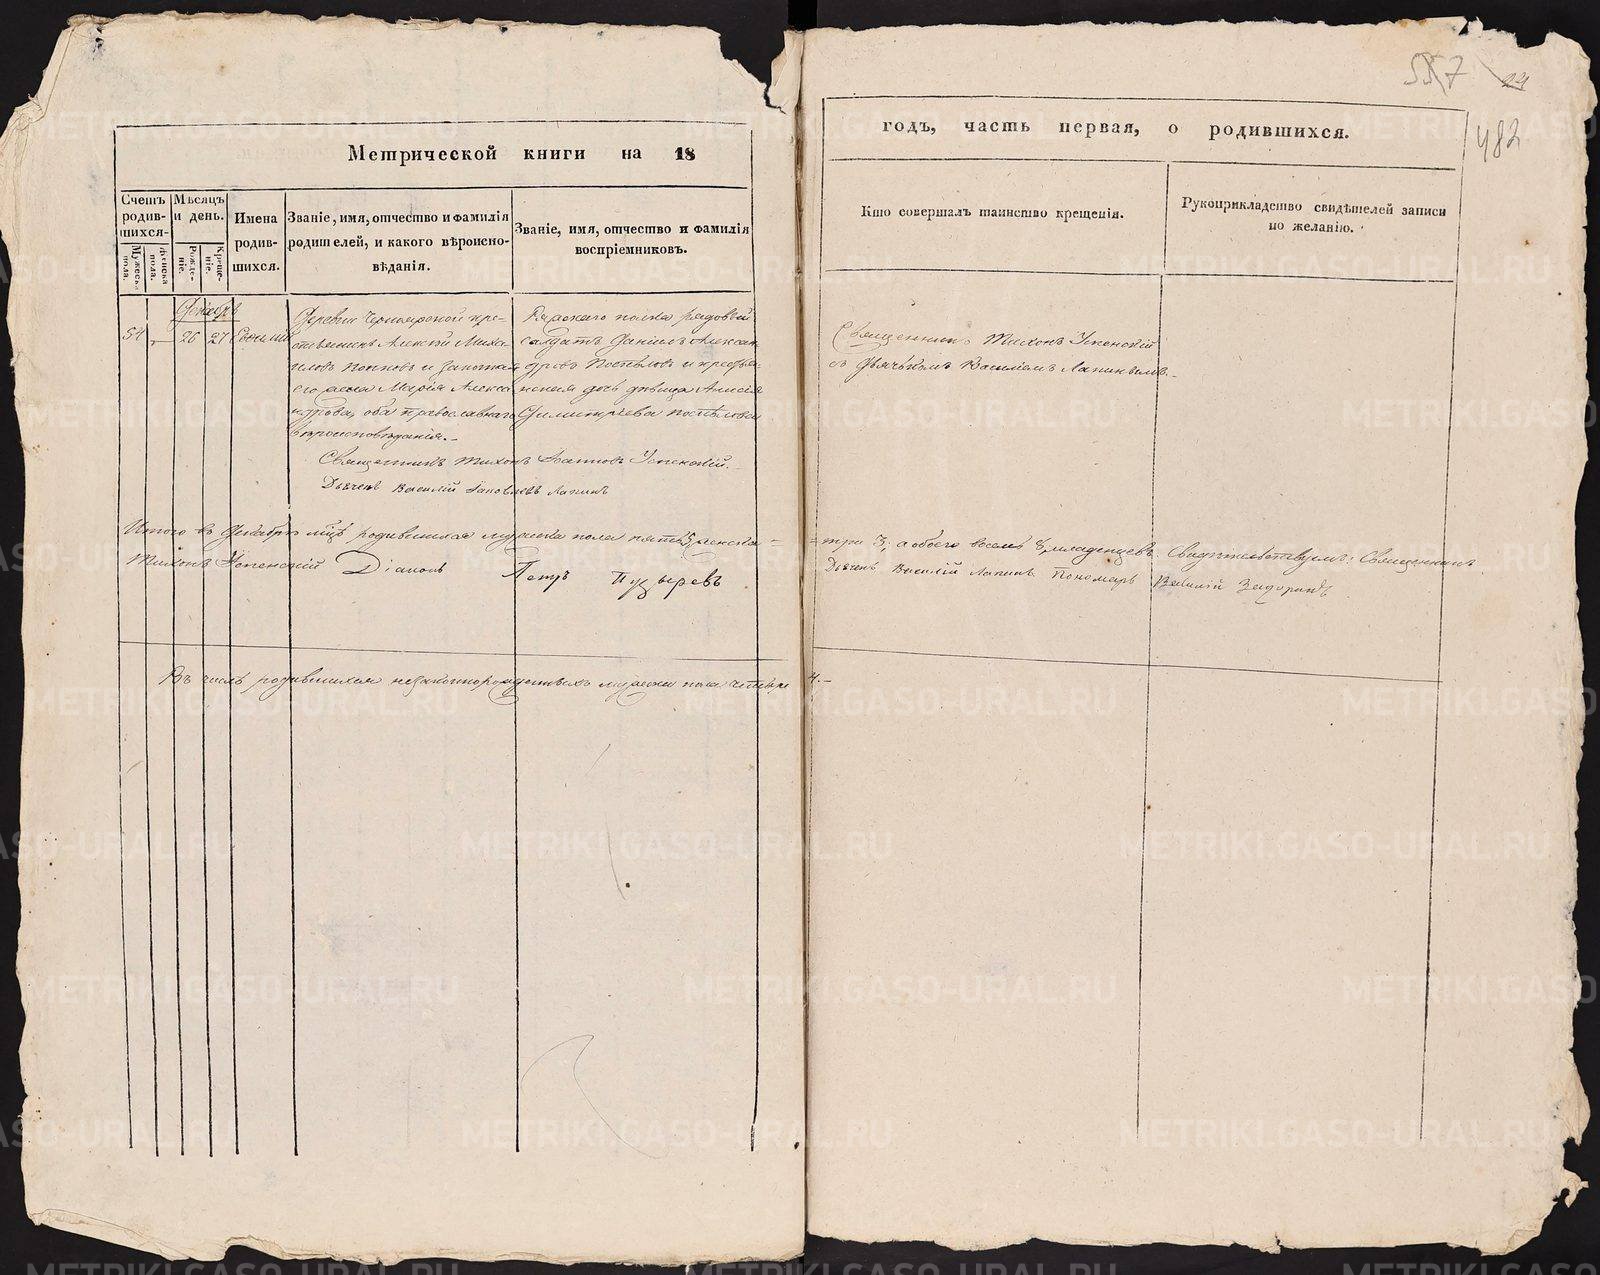 557 24
482
Метрической книги на 18
годъ, часть первая, о родившихся.
Счетъ родив-шихся.
Мужеска пола.
Женска пола.
Мѣсяцъ и день.
Рожде-ніе.
Креще-ніе.
Имена родив-шихся.
Званіе, имя, отчество и фамилія
родителей, и какого вѣроиспо-
вѣданія.
Званіе, имя, отчество и фамилія
воспріемниковъ.
Кто совершалъ таинство крещенія.
Рукоприкладство свидѣтелей записи
по желанію.
Декабрь
54 26 27 Евѳимій
Деревни Черноярской кре-
стьянинъ Алексѣй Миха-
иловъ Попковъ и законная
его жена Марія Алекса
ндрова, оба православнаго
вѣроисповѣданія.-
Ряжскаго полка рядовой
солдатъ Даніилъ Алексан
дровъ Поспѣловъ и крестья-
нская дочь дѣвица Анисія
Димитріева Поспѣлова
Священникъ Тихонъ Успенскій
съ Дьячькомъ Василіемъ Лапинымъ.-
Священникъ Тихонъ Іоанновъ Успенскій.
Дьячекъ Василій Іаковлевъ Лапинъ
Итого въ Декабрѣ мцѣ родившихся мужеска пола пять 5, женска- три 3; а обоего восемь 8, младенцевъ. Свидѣтельствуемъ: Священникъ
Тихонъ Успенскій Діаконъ Петръ Пузыревъ Дьячекъ Василій Лапинъ Пономарь Василій Задоринъ
Въ числѣ родившихся незаконнорожденныхъ мужеска пола четыре 4.-
METRIKI.GASO-URAL.RU